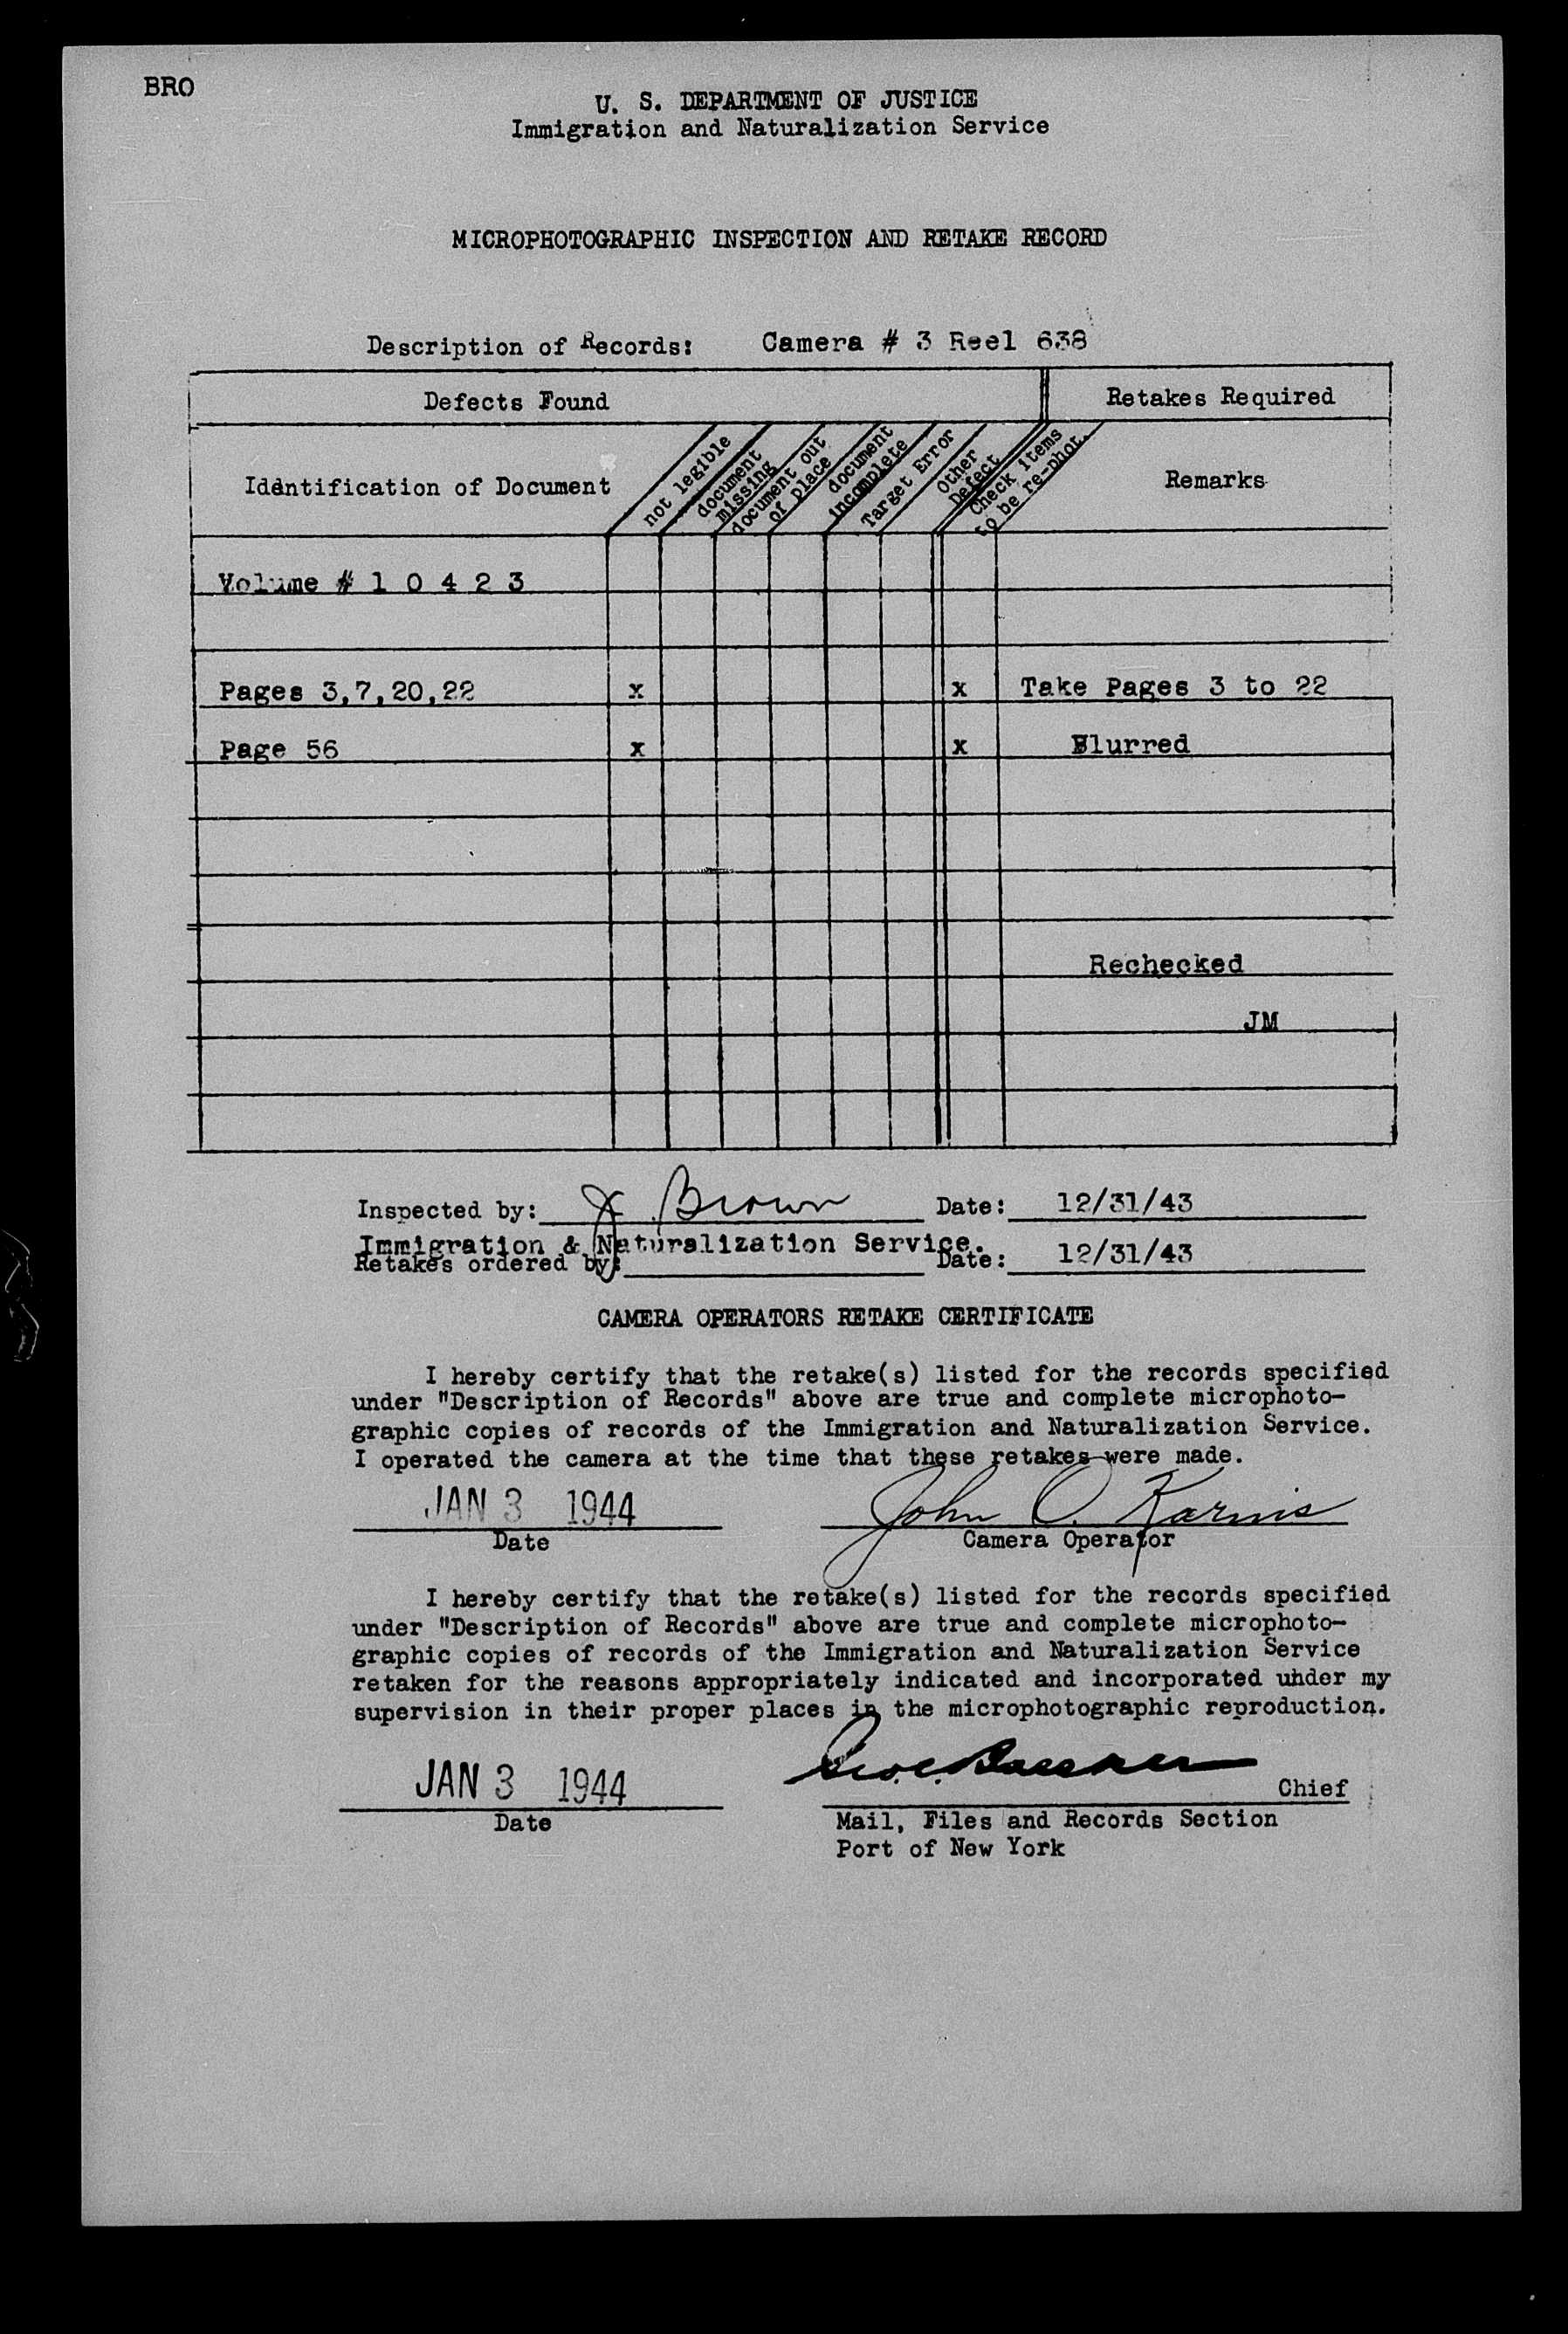 BRO
U. S. DEPARTMENT OF JUSTICE
Immigration and Naturalization Service
MICROPHOTOGRAPHIC INSPECTION AND RETAKE RECORD
Description of Records: Camera # 3 Reel 638
Defects Found Retakes Required
Identification of Document
not legible
document missing
document out of place
document incomplete
Target Error
Other Defect
Check items to be re-phot.
Remarks
Volume # 1 0 4 2 3
Pages 3,7,20,22 x x Take Pages 3 to 22
Page 56 x x Blurred
Rechecked
JM
Inspected by: J Brown Date: 12/31/43
Immigration & Naturalization Service.
Retakes ordered by: Date: 12/31/43
CAMERA OPERATORS RETAKE CERTIFICATE
I hereby certify that the retake(s) listed for the records specified
under "Description of Records" above are true and complete microphoto-
graphic copies of records of the Immigration and Naturalization Service.
I operated the camera at the time that these retakes were made.
JAN 3 1944 John O. Karnis
Date Camera Operator
I hereby certify that the retake(s) listed for the records specified
under "Description of Records" above are true and complete microphoto-
graphic copies of records of the Immigration and Naturalization Service
retaken for the reasons appropriately indicated and incorporated uhder my
supervision in their proper places in the microphotographic reproduction.
JAN 3 1944 Chief
Date Mail, Files and Records Section
Port of New York